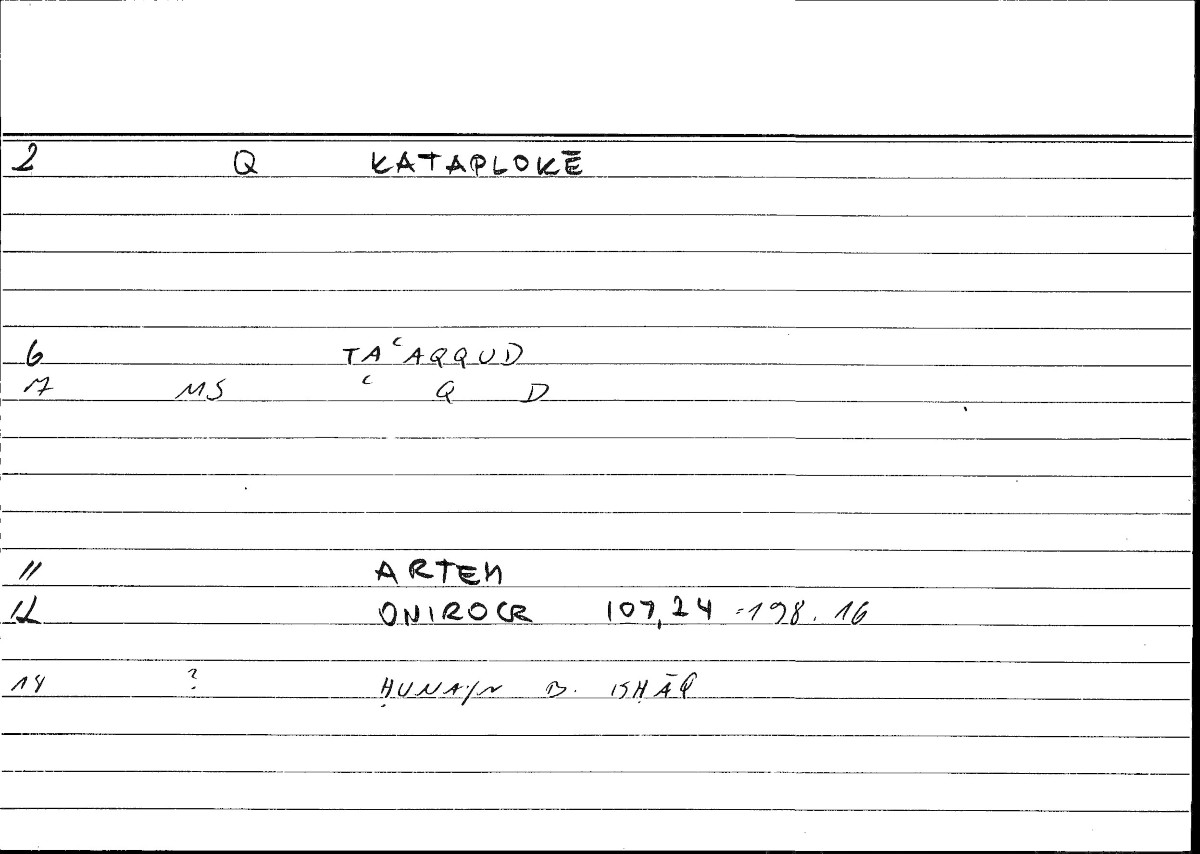 2 Q KATAPLOKĒ
6 TAʿAQQUD
7 MS ʿ Q D
11 ARTEM
12 ONIROCR 107,24 = 198.16
14 ? ḤUNAYN B. ISḤĀQ